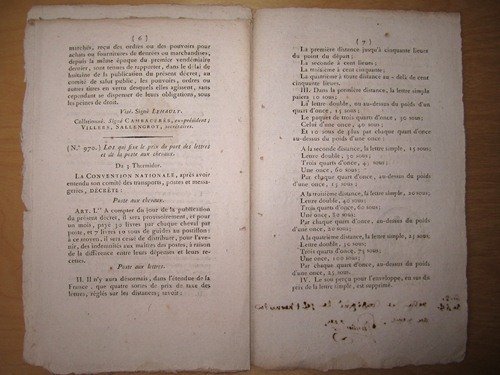 ( 6 )
marchés, reçu des ordres ou des pouvoirs pour
achats ou fournitures de denrées ou marchandises,
depuis la même époque du premier vendémiaire
dernier, sont tenues de rapporter, dans le délai de
huitaine de la publication du présent décret, au
comité de salut public, les pouvoirs, ordres ou
autres titres en vertu desquels elles agissent, sans
cependant se dispenser de leurs obligations, sous
les peines de droit.
Visé. Signé
Collationné. Signé CAMBACÉRÈS, ex-président;
VILLERS, SALLENGROS, secrétaires.
(N.° 970.) LOI qui fixe le prix du port des lettres
et de la poste aux chevaux.
Du 3 Thermidor.
LA CONVENTION NATIONALE, après avoir
entendu son comité des transports, postes et messa-
geries, DÉCRÈTE:
Poste aux chevaux.
ART. I.er A compter du jour de la publication
du présent décret, il sera provisoirement, et pour
un mois, payé 30 livres par cheval par
poste, et 7 livres 10 sous de guides au postillon:
à ce moyen, il sera cessé de distribuer, pour l'ave-
nir, des indemnités aux maîtres des postes, à raison
de la différence entre leurs dépenses et leurs re-
cettes.
Poste aux lettres.
II. Il n'y aura désormais, dans l'étendue de la
France, que quatre sortes de prix de taxe des
lettres, réglés sur les distances; savoir:
( 7 )
La première distance jusqu'à cinquante lieues
du point du départ;
La seconde à cent lieues;
La troisième à cent cinquante;
La quatrième à toute distance au-delà de cent
cinquante lieues.
III. Dans la première distance, la lettre simple
paiera 10 sous;
La lettre double, ou au-dessus du poids d'un
quart d'once, 20 sous;
Le paquet de trois quarts d'once, 30 sous;
Celui d'une once, 40 sous;
Et 10 sous de plus par chaque quart d'once
au-dessus du poids d'une once.
A la seconde distance, la lettre simple, 15 sous;
Lettre double, 30 sous;
Trois quarts d'once, 45 sous;
Une once, 60 sous;
Par chaque quart d'once, au-dessus du poids
d'une once, 15 sous.
A la troisième distance, la lettre simple, 20 sous;
Lettre double, 40 sous;
Trois quarts d'once, 60 sous;
Une once, 80 sous;
Par chaque quart d'once, au-dessus du poids
d'une once, 20 sous.
A la quatrième distance, la lettre simple, 25 sous;
Lettre double, 50 sous;
Trois quarts d'once, 75 sous;
Une once, 100 sous;
Par chaque quart d'once, au-dessus du poids
d'une once, 25 sous.
IV. Le sou perçu pour l'enveloppe, en sus du
prix de la lettre simple, est supprimé.